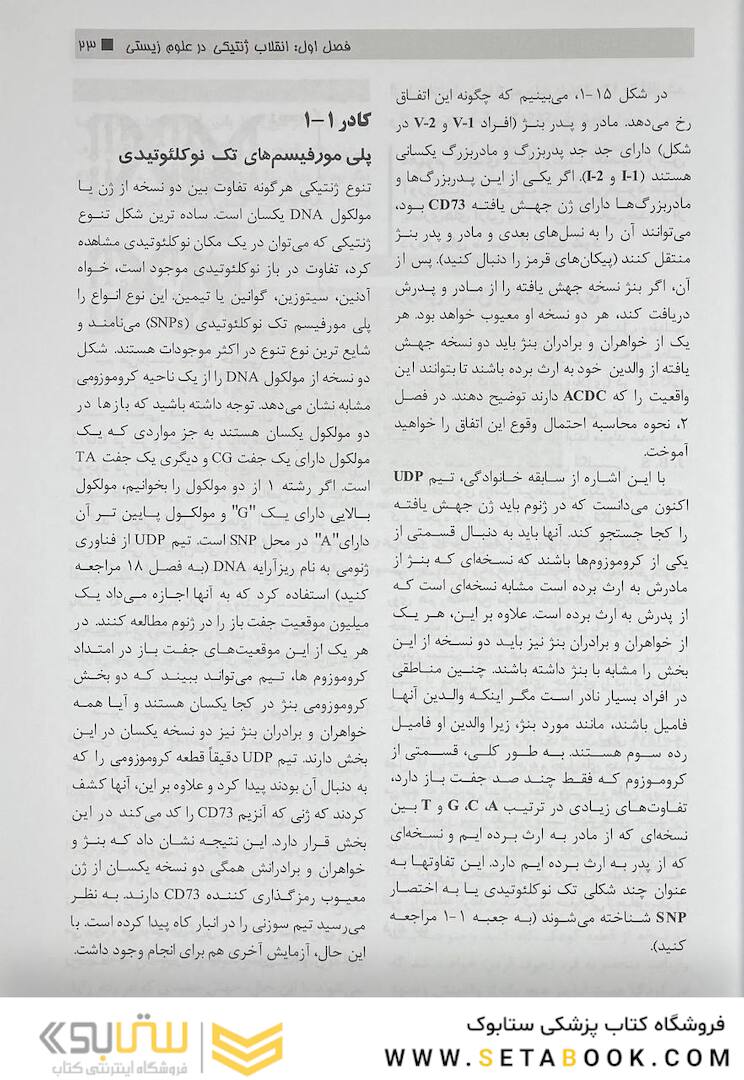 فصل اول: انقلاب ژنتیکی در علوم زیستی ■ ۲۳
در شکل ۱۵-۱، می‌بینیم که چگونه این اتفاق
رخ می‌دهد. مادر و پدر بنژ (افراد V-1 و V-2 در
شکل) دارای جد جد پدربزرگ و مادربزرگ یکسانی
هستند (I-1 و I-2). اگر یکی از این پدربزرگ‌ها و
مادربزرگ‌ها دارای ژن جهش یافته CD73 بود،
می‌توانند آن را به نسل‌های بعدی و مادر و پدر بنژ
منتقل کنند (پیکان‌های قرمز را دنبال کنید). پس از
آن، اگر بنژ نسخه جهش یافته را از مادر و پدرش
دریافت کند، هر دو نسخه او معیوب خواهد بود. هر
یک از خواهران و برادران بنژ باید دو نسخه جهش
یافته از والدین خود به ارث برده باشند تا بتوانند این
واقعیت را که ACDC دارند توضیح دهند. در فصل
۲، نحوه محاسبه احتمال وقوع این اتفاق را خواهید
آموخت.
با این اشاره از سابقه خانوادگی، تیم UDP
اکنون می‌دانست که در ژنوم باید ژن جهش یافته
را کجا جستجو کند. آنها باید به دنبال قسمتی از
یکی از کروموزوم‌ها باشند که نسخه‌ای که بنژ از
مادرش به ارث برده است مشابه نسخه‌ای است که
از پدرش به ارث برده است. علاوه بر این، هر یک
از خواهران و برادران بنژ نیز باید دو نسخه از این
بخش را مشابه با بنژ داشته باشند. چنین مناطقی
در افراد بسیار نادر است مگر اینکه والدین آنها
فامیل باشند، مانند مورد بنژ، زیرا والدین او فامیل
رده سوم هستند. به طور کلی، قسمتی از
کروموزوم که فقط چند صد جفت باز دارد،
تفاوت‌های زیادی در ترتیب G ،C ،A و T بین
نسخه‌ای که از مادر به ارث برده ایم و نسخه‌ای
که از پدر به ارث برده ایم دارد. این تفاوتها به
عنوان چند شکلی تک نوکلئوتیدی یا به اختصار
SNP شناخته می‌شوند (به جعبه ۱-۱ مراجعه
کنید).
کادر ۱-۱
پلی مورفیسم‌های تک نوکلئوتیدی
تنوع ژنتیکی هرگونه تفاوت بین دو نسخه از ژن یا
مولکول DNA یکسان است. ساده ترین شکل تنوع
ژنتیکی که می‌توان در یک مکان نوکلئوتیدی مشاهده
کرد، تفاوت در باز نوکلئوتیدی موجود است، خواه
آدنین، سیتوزین، گوانین یا تیمین. این نوع انواع را
پلی مورفیسم تک نوکلئوتیدی (SNPs) می‌نامند و
شایع ترین نوع تنوع در اکثر موجودات هستند. شکل
دو نسخه از مولکول DNA را از یک ناحیه کروموزومی
مشابه نشان می‌دهد. توجه داشته باشید که بازها در
دو مولکول یکسان هستند به جز مواردی که یک
مولکول دارای یک جفت CG و دیگری یک جفت TA
است. اگر رشته ۱ از دو مولکول را بخوانیم، مولکول
بالایی دارای یک "G" و مولکول پایین تر آن
دارای"A" در محل SNP است. تیم UDP از فناوری
ژنومی به نام ریزآرایه DNA (به فصل ۱۸ مراجعه
کنید) استفاده کرد که به آنها اجازه می‌داد یک
میلیون موقعیت جفت باز را در ژنوم مطالعه کنند. در
هر یک از این موقعیت‌های جفت باز در امتداد
کروموزوم ها، تیم می‌تواند ببیند که دو بخش
کروموزومی بنژ در کجا یکسان هستند و آیا همه
خواهران و برادران بنژ نیز دو نسخه یکسان در این
بخش دارند. تیم UDP دقیقاً قطعه کروموزومی را که
به دنبال آن بودند پیدا کرد و علاوه بر این، آنها کشف
کردند که ژنی که آنزیم CD73 را کد می‌کند در این
بخش قرار دارد. این نتیجه نشان داد که بنژ و
خواهران و برادرانش همگی دو نسخه یکسان از ژن
معیوب رمزگذاری کننده CD73 دارند. به نظر
می‌رسید تیم سوزنی را در انبار کاه پیدا کرده است. با
این حال، آزمایش آخری هم برای انجام وجود داشت.
فروشگاه کتاب پزشکی ستابوک
WWW.SETABOOK.COM
ستابوک
فروشگاه اینترنتی کتاب